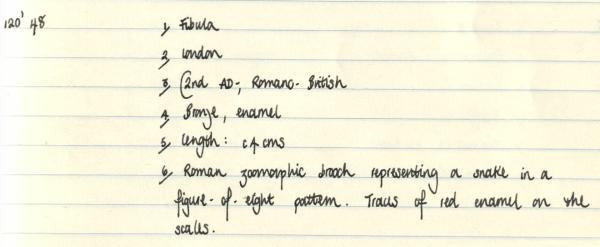 120' 48 1, Fibula
2, London
3, C2nd AD-, Romano-British
4, Bronze, enamel
5, Length: c4 cms
6, Roman zoomorphic brooch representing a snake in a
figure-of-eight pattern. Traces of red enamel on the
scales.